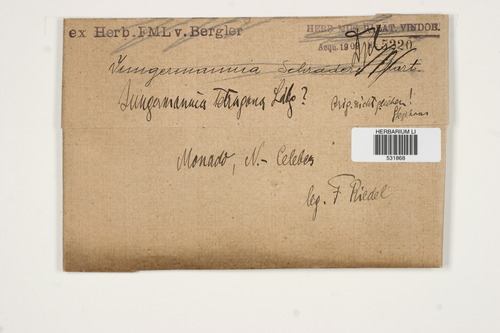 ex Herb. FML v. Bergler
HERB. MUS. PALAT. VINDOB.
Acqu. 19 5220
Jungermannia Schraderi Mart.
Jungermannia tetragona Ldbg?
Orig. nicht gesehen!
Stephani
HERBARIUM LI
531868
Monado, N.- Celebes
leg. F Riedel